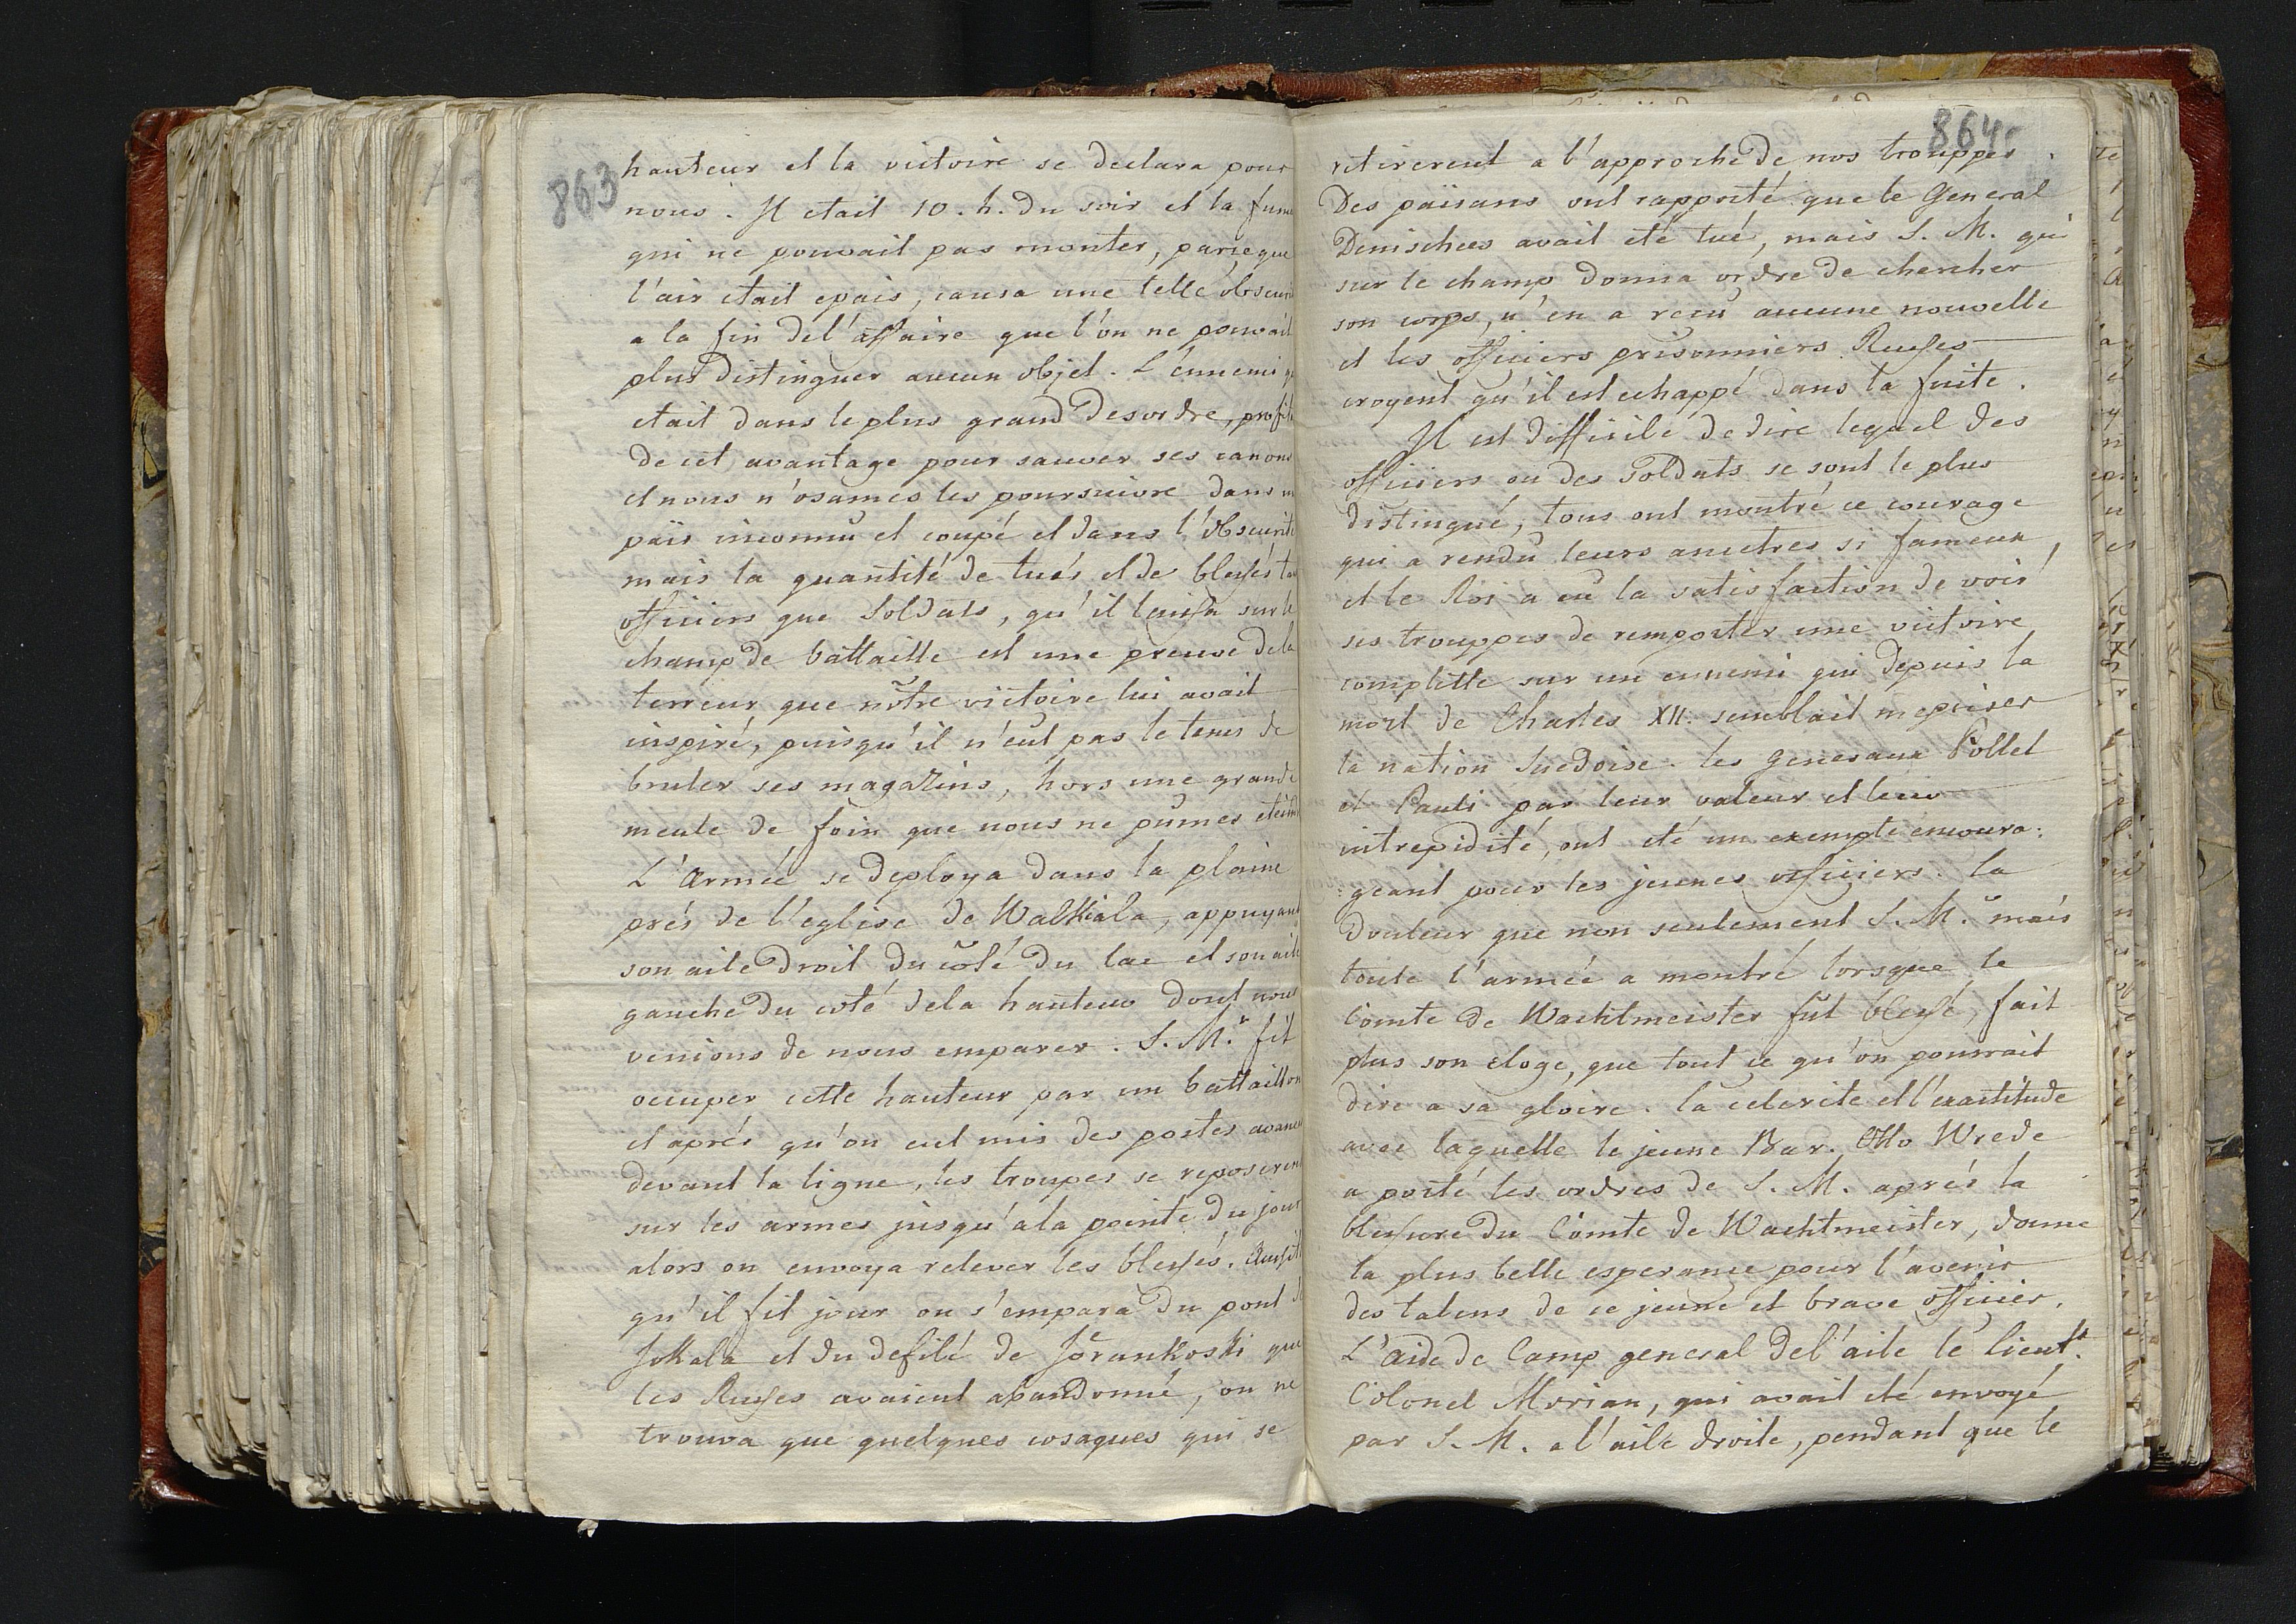 863
hauteur et la victoire se declara pour
nous. Il etait 10. h. du soir et la fum
qui ne pouvait pas monter, parceque
l'air etait epais, causa une telle obscuri
a la fin de l'affaire que l'on ne pouvait
plus distinguer aucun objet. L'ennemi q
etait dans le plus grand desordre, profit
de cet avantage pour sauver ses canons
et nous n'osames les poursuivre dans u
païs inconnu et coupé et dans l'obscurité
mais la quantité de tués et de blessés ta
officiers que soldats, qu'il laissa sur le
champ de battaille est une preuve de la
terreur que nôtre victoire lui avait
inspiré, puisqu'il n'eut pas le tems de
bruler ses magazins, hors une grande
meule de foin que nous ne pumes etein
L'Armée se deploya dans la plaine
prés de l'eglise de Walkiala, appuyant
son aile droit du côté du lac et son aile
gauche du coté de la hauteur dont nous
venions de nous emparer. S. M. fit
occuper cette hauteur par un battaillon
et aprés qu'on eut mis des postes avancé
devant la ligne, les troupes se reposeren
sur les armes jusqu'a la pointe du jour
alors on envoya relever les blessés. Aussit
qu'il fit jour on s'empara du pont d
Jokala et du defilé de Jörunkoski que
les Russes avaient abandonné, on ne
trouva que quelques cosaques qui se
864
retirerent a l'approche de nos trouppes.
Des païsans ont rapporté que le General
Denischees avait eté tué, mais S. M. qui
sur le champ donna ordre de chercher
son corps, n'en a recu aucune nouvelle
et les officiers prisonniers Russes
croyent qu'il est echappé dans la fuite.
Il est difficile de dire lequel des
officiers ou des soldats se sont le plus
distingué, tous ont montré ce courage
qui a rendu leurs ancetres si fameux,
et le Roi a eu la satisfaction de voir
ses trouppes de remporter une victoire
complette sur un ennemi qui depuis la
mort de Charles XII. semblait mepriser
la nation Suedoise. les Generaux Pollet
et Pauli par leur valeur et leur
intrepidité, ont eté un exemple encoura:
:geant pour les jeunes officiers. la
douleur que non seulement S. M. mais
toute l'armée a montré lorsque le
Comte de Wachtmeister fut blessé, fait
plus son eloge, que tout ce qu'on pourrait
dire a sa gloire. la celerite et l'exactitude
avec laquelle le jeune Bar. Otto Wrede
a porté les ordres de S. M. aprés la
blessure du Comte de Wachtmeister, donne
la plus belle esperance pour l'avenir
des talens de ce jeune et brave officier.
L'aide de Camp general de l'aile le Lieut.
Colonel Morian, qui avait eté envoyé
par S. M. a l'aile droite, pendant que le